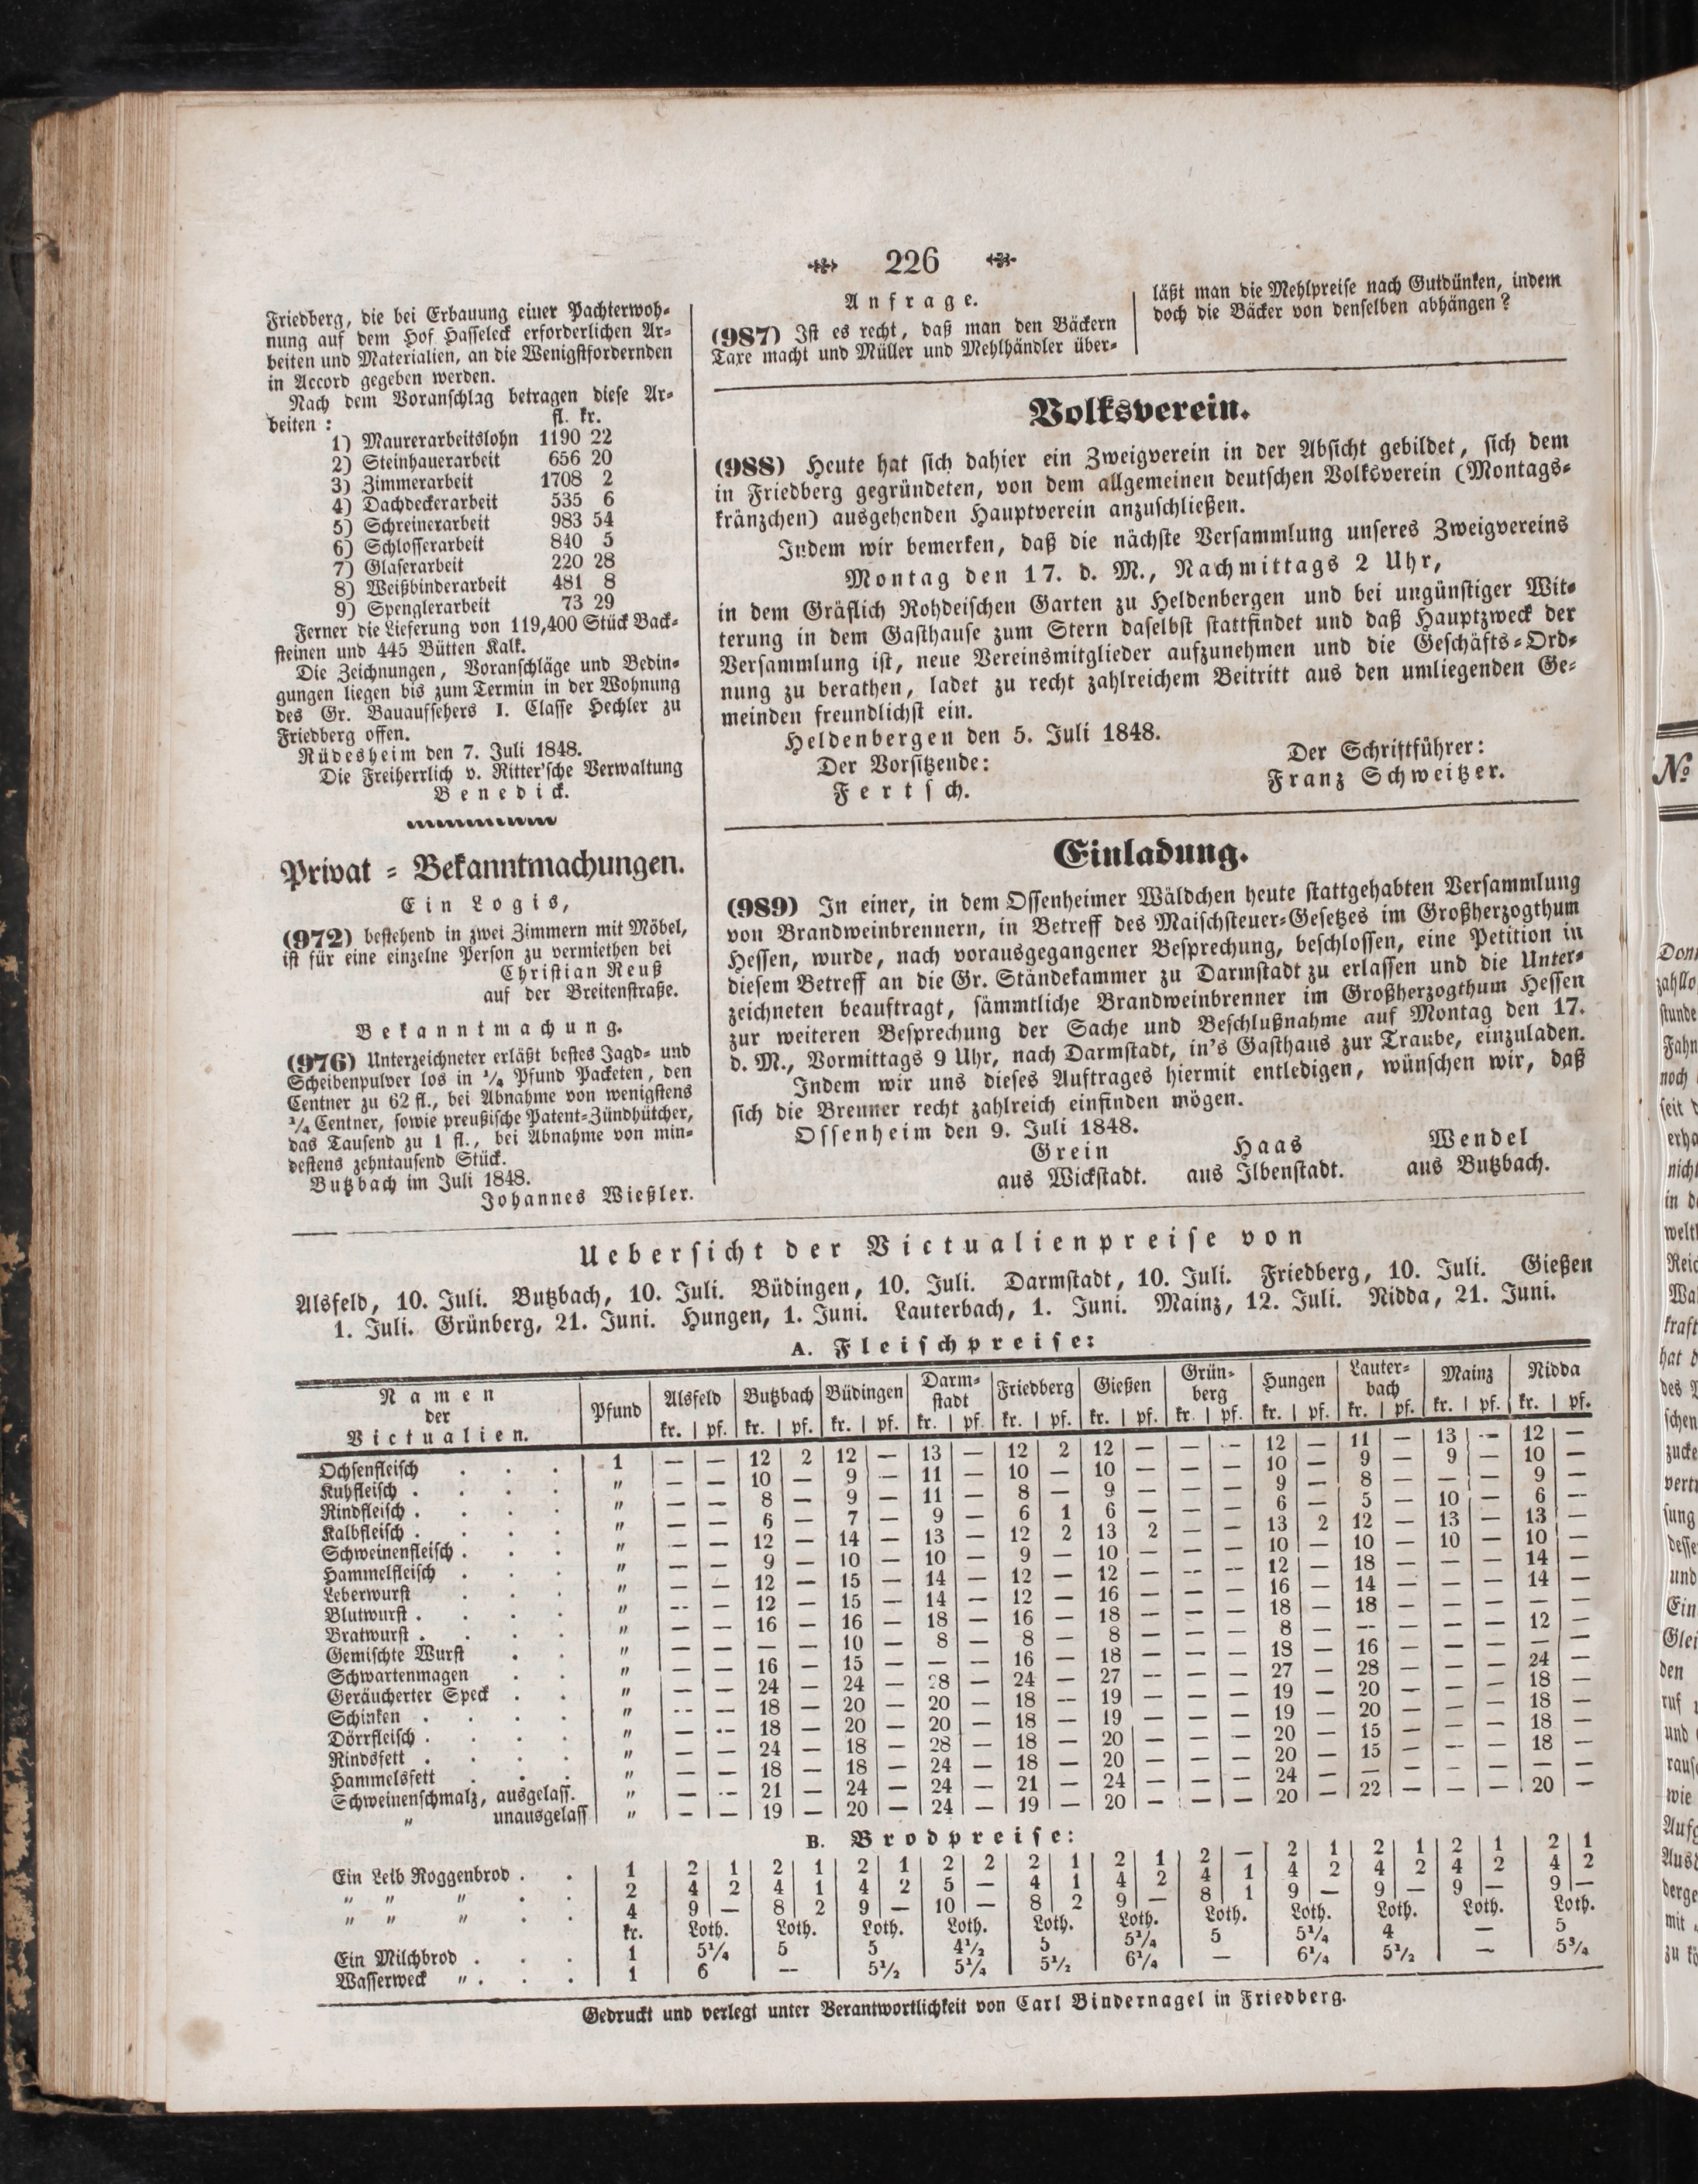 226
Friedberg, die bei Erbauung einer Pachterwoh-
nung auf dem Hof Hasseleck erforderlichen Ar-
beiten und Materialien, an die Wenigstfordernden
in Accord gegeben werden.
Nach dem Voranschlag betragen diese Ar-
beiten: fl. kr.
1) Maurerarbeitslohn 1190 22
2) Steinhauerarbeit 656 20
3) Zimmerarbeit 1708 2
4) Dachdeckerarbeit 535 6
5) Schreinerarbeit 983 54
6) Schlosserarbeit 840 5
7) Glaserarbeit 220 28
8) Weißbinderarbeit 481 8
9) Spenglerarbeit 73 29
Ferner die Lieferung von 119,400 Stück Back-
steinen und 445 Bütten Kalk.
Die Zeichnungen, Voranschläge und Bedin-
gungen liegen bis zum Termin in der Wohnung
des Gr. Bauaufsehers I. Classe Hechler zu
Friedberg offen.
Rüdesheim den 7. Juli 1848.
Die Freiherrlich v. Ritter'sche Verwaltung
Benedick.
Privat-Bekanntmachungen.
Ein Logis,
(972) bestehend in zwei Zimmern mit Möbel,
ist für eine einzelne Person zu vermiethen bei
Christian Reuß
auf der Breitenstraße.
Bekanntmachung.
(976) Unterzeichneter erläßt bestes Jagd- und
Scheibenpulver los in ¼ Pfund Packeten, den
Centner zu 62 fl., bei Abnahme von wenigstens
¼ Centner, sowie preußische Patent-Zündhütcher,
das Tausend zu 1 fl., bei Abnahme von min-
destens zehntausend Stück.
Butzbach im Juli 1848.
Johannes Wießler.
Anfrage.
(987) Ist es recht, daß man den Bäckern
Taxe macht und Müller und Mehlhändler über-
läßt man die Mehlpreise nach Gutdünken, indem
doch die Bäcker von denselben abhängen?
Volksverein.
(988) Heute hat sich dahier ein Zweigverein in der Absicht gebildet, sich dem
in Friedberg gegründeten, von dem allgemeinen deutschen Volksverein (Montags-
kränzchen) ausgehenden Hauptverein anzuschließen.
Indem wir bemerken, daß die nächste Versammlung unseres Zweigvereins
Montag den 17. d. M., Nachmittags 2 Uhr,
in dem Gräflich Rohdeischen Garten zu Heldenbergen und bei ungünstiger Wit-
terung in dem Gasthause zum Stern daselbst stattfindet und daß Hauptzweck der
Versammlung ist, neue Vereinsmitglieder aufzunehmen und die Geschäfts-Ord-
nung zu berathen, ladet zu recht zahlreichem Beitritt aus den umliegenden Ge-
meinden freundlichst ein.
Heldenbergen den 5. Juli 1848.
Der Vorsitzende: Der Schriftführer:
Fertsch. Franz Schweitzer.
Einladung.
(989) In einer, in dem Ossenheimer Wäldchen heute stattgehabten Versammlung
von Brandweinbrennern, in Betreff des Maischsteuer-Gesetzes im Großherzogthum
Hessen, wurde, nach vorausgegangener Besprechung, beschlossen, eine Petition in
diesem Betreff an die Gr. Ständekammer zu Darmstadt zu erlassen und die Unter-
zeichneten beauftragt, sämmtliche Brandweinbrenner im Großherzogthum Hessen
zur weiteren Besprechung der Sache und Beschlußnahme auf Montag den 17.
d. M., Vormittags 9 Uhr, nach Darmstadt, in's Gasthaus zur Traube, einzuladen.
Indem wir uns dieses Auftrages hiermit entledigen, wünschen wir, daß
sich die Brenner recht zahlreich einfinden mögen.
Ossenheim den 9. Juli 1848.
Grein Haas Wendel
aus Wickstadt. aus Ilbenstadt. aus Butzbach.
Uebersicht der Victualienpreise von
Alsfeld, 10. Juli. Butzbach, 10. Juli. Büdingen, 10. Juli. Darmstadt, 10. Juli. Friedberg, 10. Juli. Gießen
1. Juli. Grünberg, 21. Juni. Hungen, 1. Juni. Lauterbach, 1. Juni. Mainz, 12. Juli. Nidda, 21. Juni.
A. Fleischpreise:
Namen der Victualien. Pfund Alsfeld Butzbach Büdingen Darm-stadt Friedberg Gießen Grün-berg Hungen Lauter-bach Mainz Nidda
kr. pf. kr. pf. kr. pf. kr. pf. kr. pf. kr. pf. kr. pf. kr. pf. kr. pf. kr. pf. kr. pf.
Ochsenfleisch 1 — — 12 2 12 — 13 — 12 2 12 — — — 12 — 11 — 13 — 12 —
Kuhfleisch " — — 10 — 9 — 11 — 10 — 10 — — — 10 — 9 — 9 — 10 —
Rindfleisch " — — 8 — 9 — 11 — 8 — 9 — — — 9 — 8 — — — 9 —
Kalbfleisch " — — 6 — 7 — 9 — 6 1 6 — — — 6 — 5 — 10 — 6 —
Schweinenfleisch " — — 12 — 14 — 13 — 12 2 13 2 — — 13 2 12 — 13 — 13 —
Hammelfleisch " — — 9 — 10 — 10 — 9 — 10 — — — 10 — 10 — 10 — 10 —
Leberwurst " — — 12 — 15 — 14 — 12 — 12 — — — 12 — 18 — — — 14 —
Blutwurst " — — 12 — 15 — 14 — 12 — 16 — — — 16 — 14 — — — 14 —
Bratwurst " — — 16 — 16 — 18 — 16 — 18 — — — 18 — 18 — — — — —
Gemischte Wurst " — — — — 10 — 8 — 8 — 8 — — — 8 — — — — — 12 —
Schwartenmagen " — — 16 — 15 — — — 16 — 18 — — — 18 — 16 — — — — —
Geräucherter Speck " — — 24 — 24 — 28 — 24 — 27 — — — 27 — 28 — — — 24 —
Schinken " — — 18 — 20 — 20 — 18 — 19 — — — 19 — 20 — — — 18 —
Dörrfleisch " — — 18 — 20 — 20 — 18 — 19 — — — 19 — 20 — — — 18 —
Rindsfett " — — 24 — 18 — 28 — 18 — 20 — — — 20 — 15 — — — 18 —
Hammelsfett " — — 18 — 18 — 24 — 18 — 20 — — — 20 — 15 — — — 18 —
Schweinenschmalz, ausgelass. " — — 21 — 24 — 24 — 21 — 24 — — — 24 — — — — — — —
" unausgelass " — — 19 — 20 — 24 — 19 — 20 — — — 20 — 22 — — — 20 —
B. Brodpreise:
Ein Leib Roggenbrod 1 2 1 2 1 2 1 2 2 2 1 2 1 2 — 2 1 2 1 2 1 2 1
" " " 2 4 2 4 1 4 2 5 — 4 1 4 2 4 1 4 2 4 2 4 2 4 2
" " " 4 9 — 8 2 9 — 10 — 8 2 9 — 8 1 9 — 9 — 9 — 9 —
kr. Loth. Loth. Loth. Loth. Loth. Loth. Loth. Loth. Loth. Loth. Loth.
Ein Milchbrod 1 5¼ 5 5 4½ 5 5¼ 5 5¼ 4 — 5
Wasserweck " 1 6 — 5½ 5¼ 5½ 6¼ — 6¼ 5½ — 5¾
Gedruckt und verlegt unter Verantwortlichkeit von Carl Bindernagel in Friedberg.